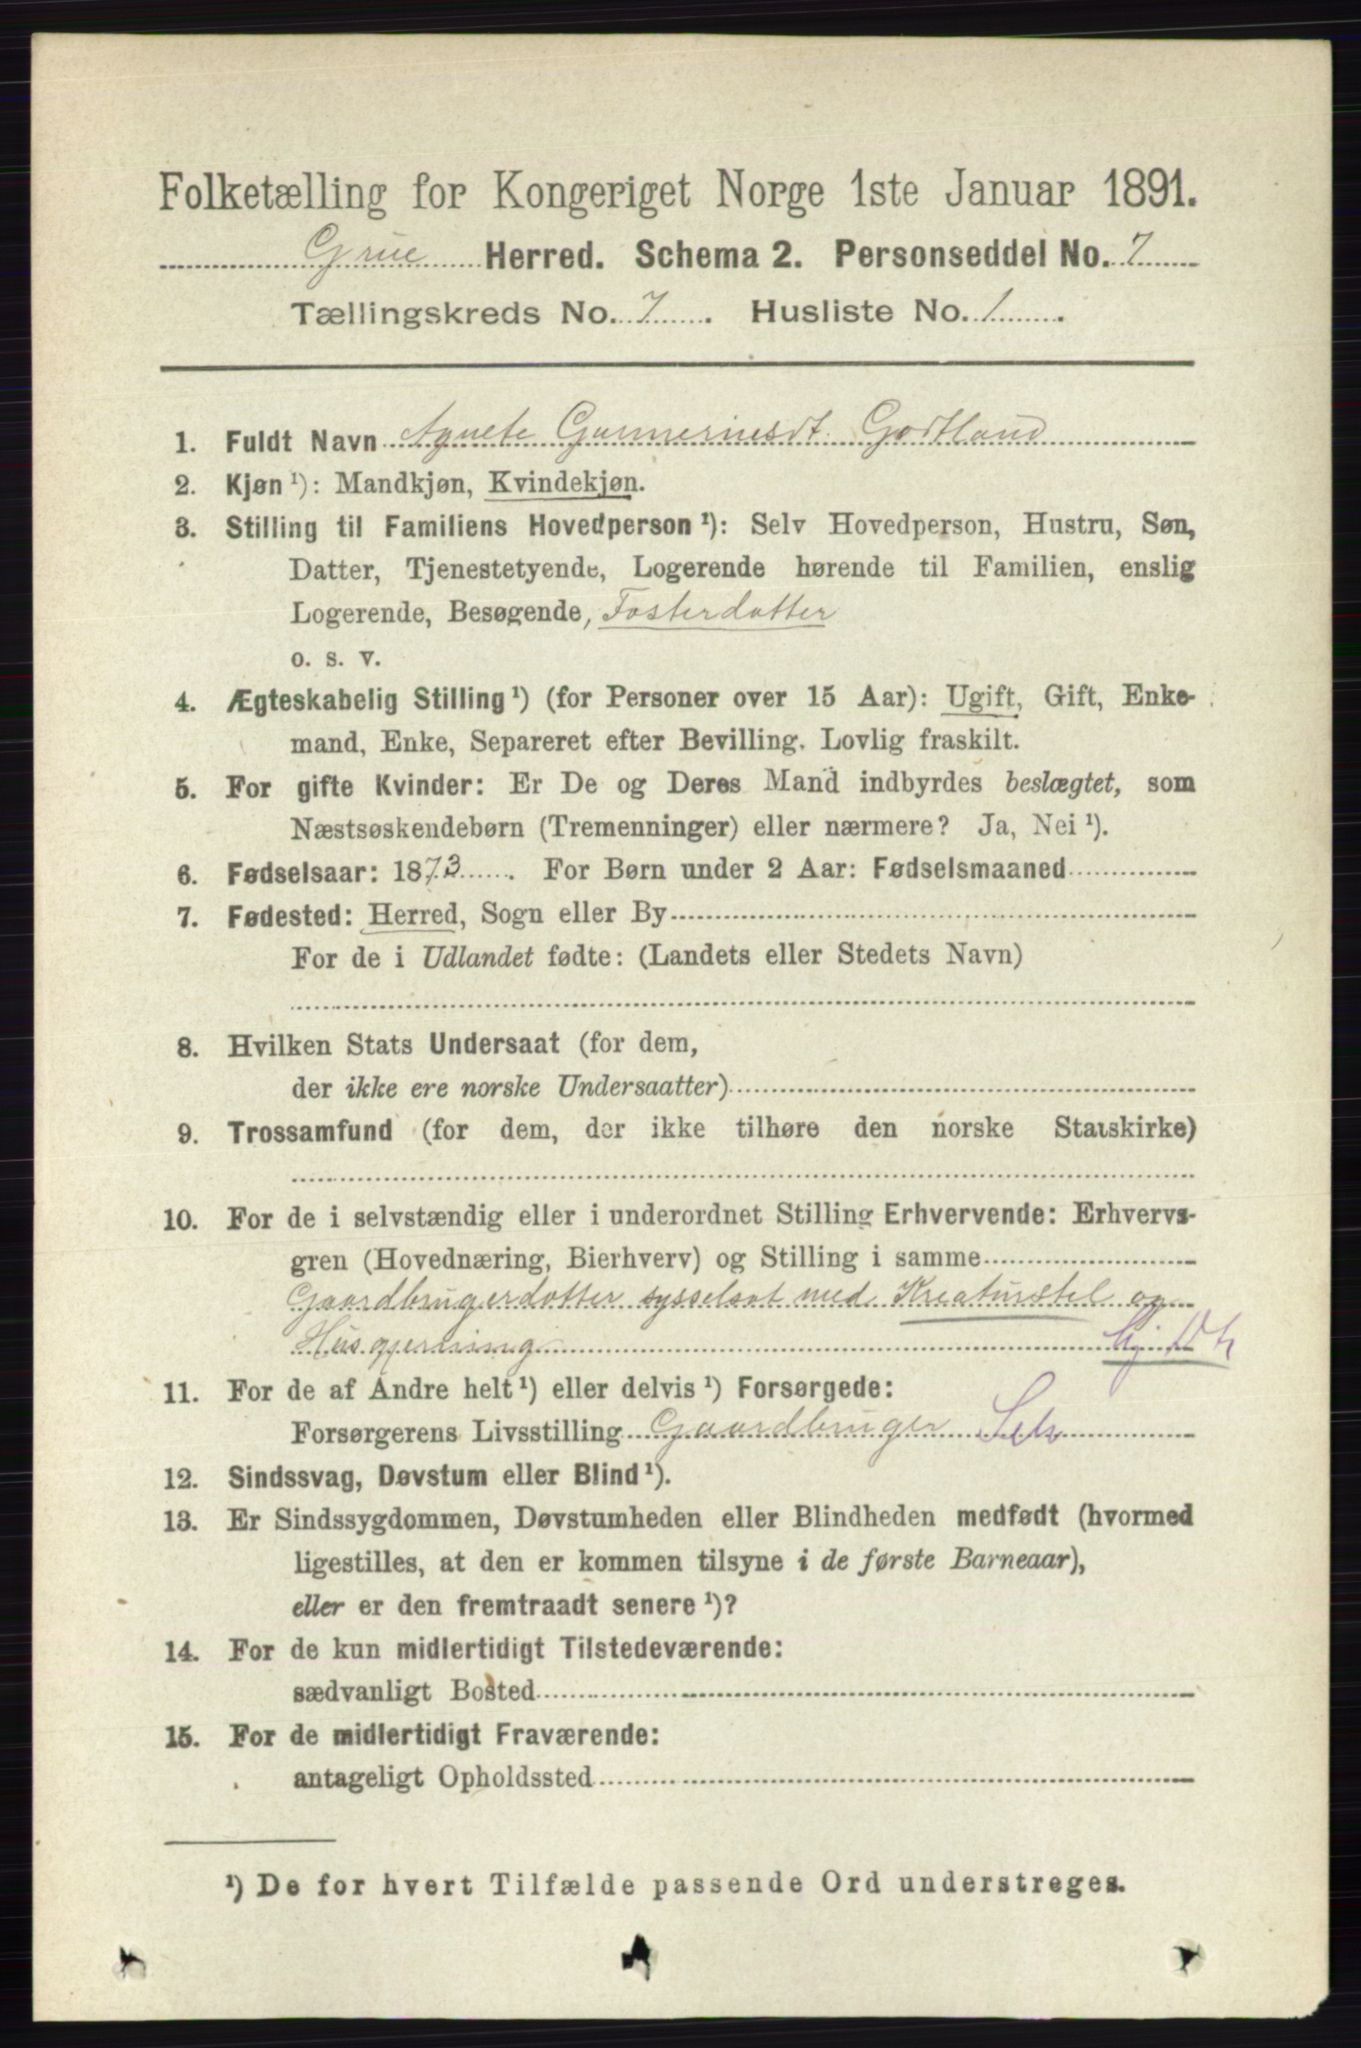 Folketælling for Kongeriget Norge 1ste Januar 1891.
Grue Herred. Schema 2. Personseddel No. 7
Tællingskreds No. 7. Husliste No. 1.
1. Fuldt Navn Agnete Gunneriusdt. Godtland
2. Kjøn ¹): Mandkjøn, Kvindekjøn.
3. Stilling til Familiens Hovedperson ¹): Selv Hovedperson, Hustru, Søn,
Datter, Tjenestetyende, Logerende hørende til Familien, enslig
Logerende, Besøgende, Fosterdatter
o. s. v.
4. Ægteskabelig Stilling ¹) (for Personer over 15 Aar): Ugift, Gift, Enke-
mand, Enke, Separeret efter Bevilling. Lovlig fraskilt.
5. For gifte Kvinder: Er De og Deres Mand indbyrdes beslægtet, som
Næstsøskendebørn (Tremenninger) eller nærmere? Ja, Nei ¹).
6. Fødselsaar: 1873. For Børn under 2 Aar: Fødselsmaaned
7. Fødested: Herred, Sogn eller By
For de i Udlandet fødte: (Landets eller Stedets Navn)
8. Hvilken Stats Undersaat (for dem,
der ikke ere norske Undersaatter)
9. Trossamfund (for dem, der ikke tilhøre den norske Statskirke)
10. For de i selvstændig eller i underordnet Stilling Erhvervende: Erhvervs-
gren (Hovednæring, Bierhverv) og Stilling i samme
Gaardbrugerdatter sysselsat med Kreaturstel og
Husgjerning
11. For de af Andre helt ¹) eller delvis ¹) Forsørgede:
Forsørgerens Livsstilling Gaardbruger Selv
12. Sindssvag, Døvstum eller Blind ¹).
13. Er Sindssygdommen, Døvstumheden eller Blindheden medfødt (hvormed
ligestilles, at den er kommen tilsyne i de første Barneaar),
eller er den fremtraadt senere ¹)?
14. For de kun midlertidigt Tilstedeværende:
sædvanligt Bosted
15. For de midlertidigt Fraværende:
antageligt Opholdssted
¹) De for hvert Tilfælde passende Ord understreges.